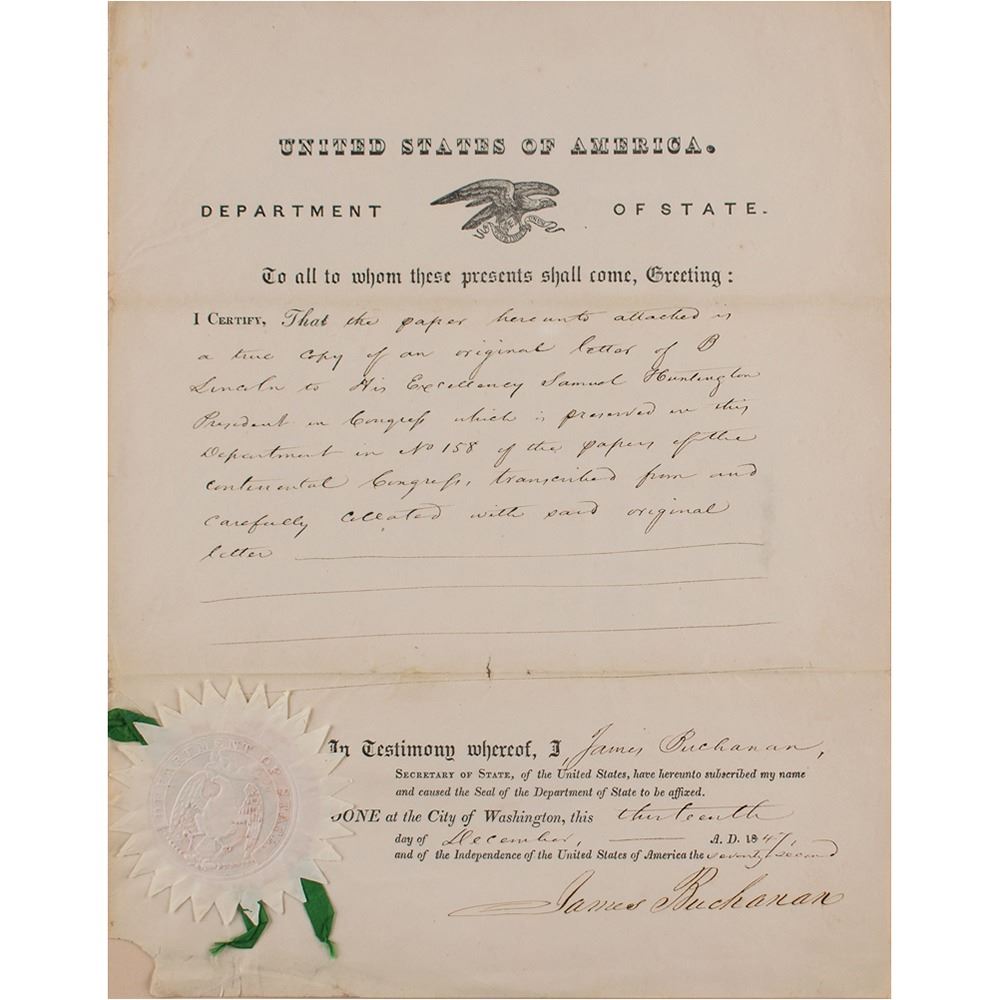 UNITED STATES OF AMERICA.
DEPARTMENT OF STATE.
To all to whom these presents shall come, Greeting:
I CERTIFY, That the paper hereunto attached is
a true copy of an original letter of B
Lincoln to His Excellency Samuel Huntington
President in Congress which is preserved in this
Department in No 158 of the papers of the
continental Congress, transcribed from and
carefully collated with said original
letter
In Testimony whereof, I James Buchanan,
SECRETARY OF STATE, of the United States, have hereunto subscribed my name
and caused the Seal of the Department of State to be affixed.
DONE at the City of Washington, this thirteenth
day of December, A. D. 1847,
and of the Independence of the United States of America the seventy second
James Buchanan
DEPARTMENT OF STATE